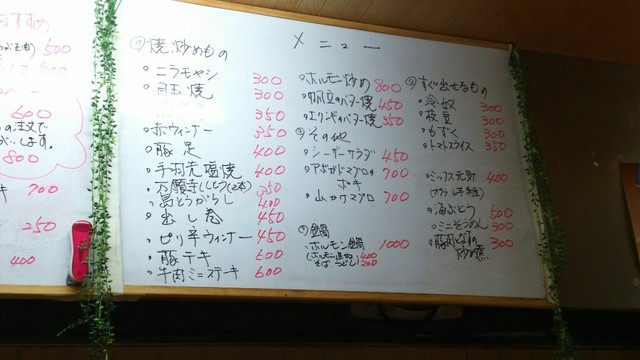 おすすめ
500
600
の注文で
します。
800
キ 700
250
400
メニュー
焼、炒めもの
ニラモヤシ 300
目玉焼 300
350
赤ウィンナー 350
豚足 400
手羽先塩焼 400
万願寺ししとう(2本) 350
島とうがらし 400
出し巻 450
ピリ辛ウィンナー 450
豚テキ 600
牛肉ミニステーキ 600
ホルモン炒め 800
帆立のバター焼 450
エリンギのバター焼 350
その他
シーザーサラダ 450
アボガドマグロのポキ 700
山かけマグロ 700
鍋
ホルモン鍋 1000
400
そば、うどん 200
すぐ出せるもの
冷奴 300
枝豆 300
もずく 300
トマトスライス 350
ミックス元気 400
海ぶどう 500
ミニそうめん 300
300